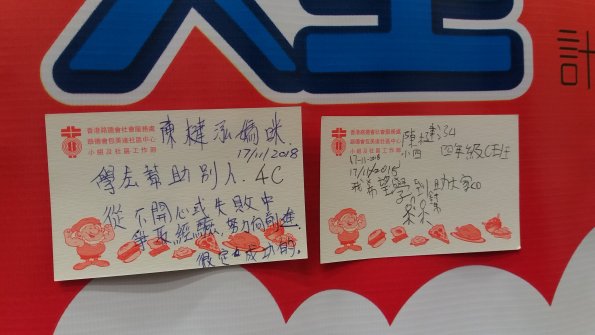 計
香港路德會社會服務處
路德會包美達社區中心
小組及社區工作部
陳健泓媽咪
17/11/2018
學左幫助別人. 4C
從不開心或失敗中
爭取經驗, 努力向前進,
做定必成功的.
香港路德會社會服務處
路德會包美達社區中心
小組及社區工作部
小四 四年級C班
17-11-2018
17/11/2018
我希望學到助大家